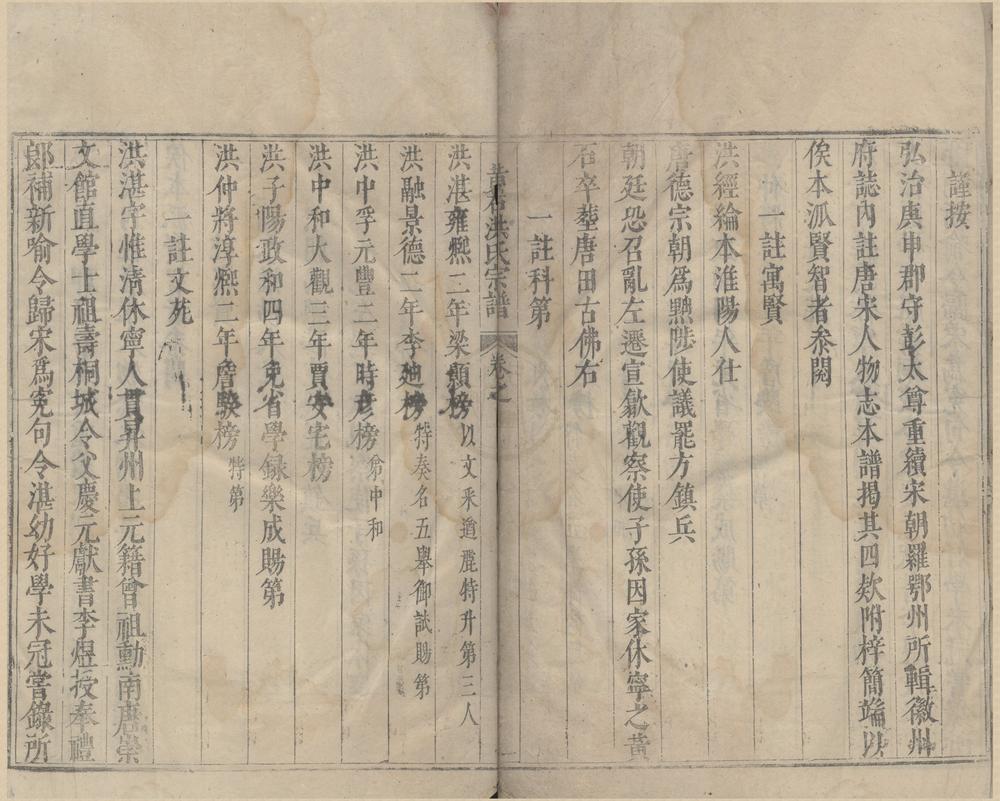 謹按
弘治庚申郡守彭太尊重續宋朝羅鄂州所輯徽州
府誌內註唐宋人物志本譜揭其四欵附梓簡端以
俟本派賢智者叅閱
一註寓賢
洪經綸本淮陽人仕
唐德宗朝爲黜陟使議罷方鎮兵
朝廷恐召亂左遷宣歙觀察使子孫因家休寧之黃
石卒塟唐田古佛右
一註科第
黃石洪氏宗譜 卷之
洪湛雍熈二年梁顥榜以文采遒麗特升第三人
洪融景德二年李廸榜特奏名五舉御試賜第
洪中孚元豐二年時彥榜
洪中和大觀三年賈安宅榜
洪子陽政和四年免省學録樂成賜第
洪仲將淳熈二年詹騤榜特第
一註文苑
洪湛字惟清休寧人貫昇州上元籍曾祖勳南唐崇
文館直學士祖壽桐城令父慶元獻書李煜授奉禮
郎補新喻令歸宋爲宛句令湛幼好學未冠嘗錄所